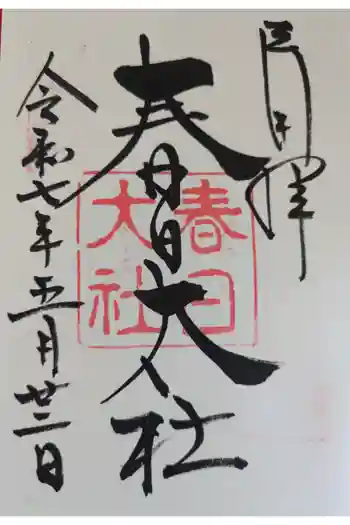 奉拝
春日大社
春日
大社
令和七年五月廿三日